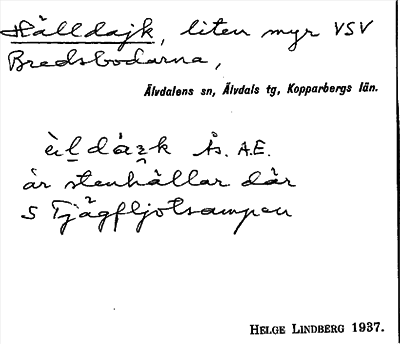 Hälldajk, liten myr VSV
Bredsbodarna,
Älvdalens sn, Älvdals tg, Kopparbergs län.
Ås. A.E.
är stenhällar där
S Tjågfljotsampen
HELGE LINDBERG 1937.